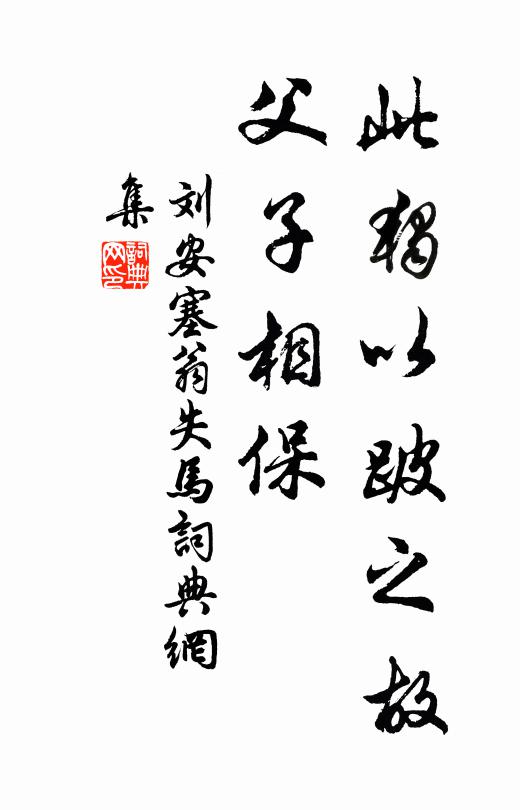 此獨以跛之故
父子相保
刘安塞翁失馬詞典網
集
詞典网印